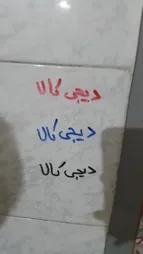 دیجی کالا
دیجی کالا
دیجی کالا